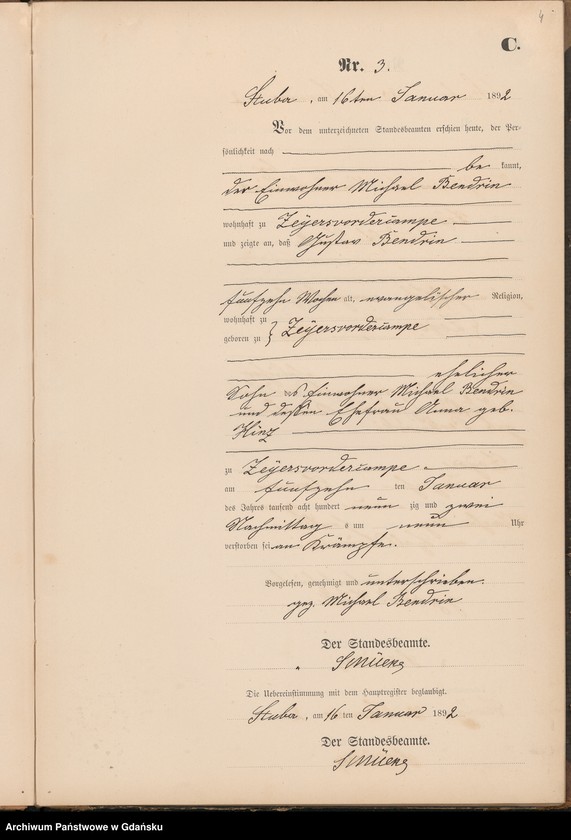 4
C.
Nr. 3.
Stuba, am 16ten Januar 1892
Vor dem unterzeichneten Standesbeamten erschien heute, der Per-
sönlichkeit nach
be kannt,
der Einwohner Michael Bendrin
wohnhaft zu Zeyersvordercampe
und zeigte an, daß Gustav Bendrin
fünfzehn Wochen alt, evangelischer Religion,
wohnhaft zu
geboren zu } Zeyersvordercampe
ehelicher
Sohn des Einwohner Michael Bendrin
und dessen Ehefrau Anna geb.
Hinz
zu Zeyersvordercampe
am fünfzehn ten Januar
des Jahres tausend acht hundert neun zig und zwei
Nachmittag s um neun Uhr
verstorben sei an Krämpfe.
Vorgelesen, genehmigt und unterschrieben.
gez. Michael Bendrin
Der Standesbeamte.
Die Uebereinstimmung mit dem Hauptregister beglaubigt.
Stuba, am 16 ten Januar 1892
Der Standesbeamte.
Archiwum Państwowe w Gdańsku